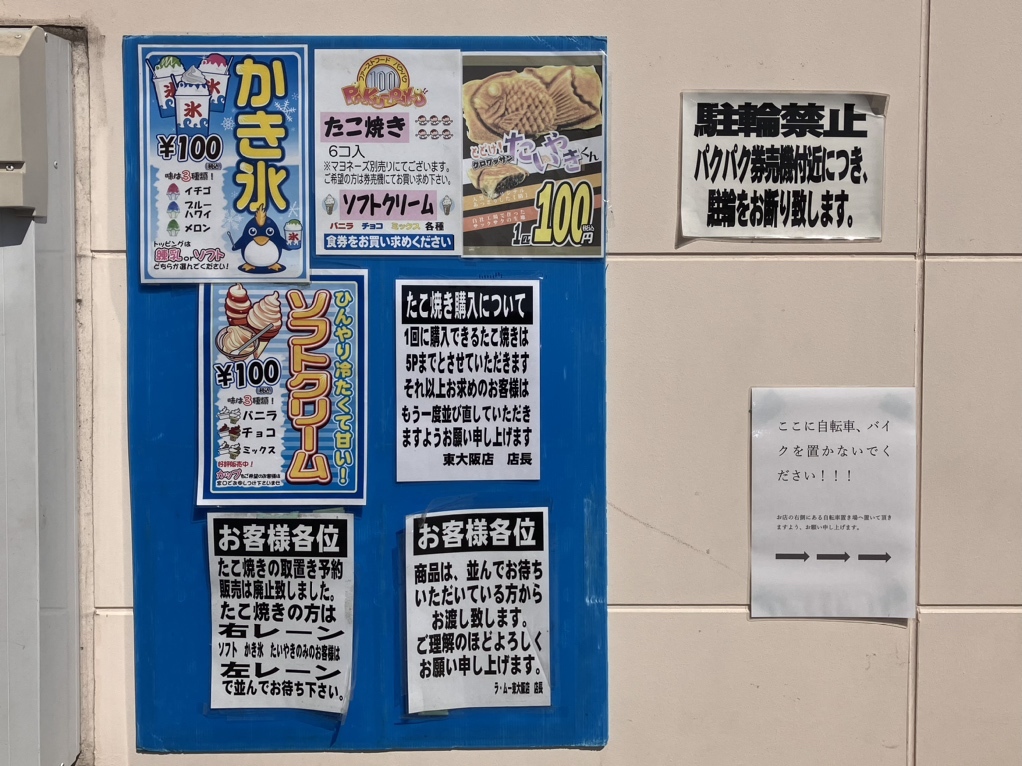 かき氷
氷
¥100
(税込)
味は3種類！
イチゴ
ブルー
ハワイ
メロン
トッピングは
練乳orソフト
どちらか選んでください！
ファーストフード パクパク
100
PAKUPAKU
たこ焼き
6コ入
※マヨネーズ別売りにてございます。
ご希望の方は券売機にてお買い求め下さい。
ソフトクリーム
バニラ チョコ ミックス 各種
食券をお買い求めください
クロワッサン
たいやきくん
1コ100円
税込
ひんやり冷たくて甘い！
ソフトクリーム
¥100
(税込)
味は3種類！
バニラ
チョコ
ミックス
好評販売中！
カップをご希望のお客様は
窓口でお申しつけ下さいませ
たこ焼き購入について
1回に購入できるたこ焼きは
5Pまでとさせていただきます
それ以上お求めのお客様は
もう一度並び直していただき
ますようお願い申し上げます
東大阪店 店長
お客様各位
たこ焼きの取置き予約
販売は廃止致しました。
たこ焼きの方は
右レーン
ソフト かき氷 たいやきのみのお客様は
左レーン
で並んでお待ち下さい。
お客様各位
商品は、並んでお待ち
いただいている方から
お渡し致します。
ご理解のほどよろしく
お願い申し上げます。
ラ・ムー東大阪店 店長
駐輪禁止
パクパク券売機付近につき、
駐輪をお断り致します。
ここに自転車、バイ
クを置かないでく
ださい！！！
お店の右側にある自転車置き場へ置いて頂き
ますよう、お願い申し上げます。